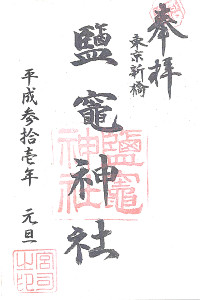 奉拝
東京新橋
鹽竈神社
平成参拾壱年 元旦
鹽竈神社
宮司之印